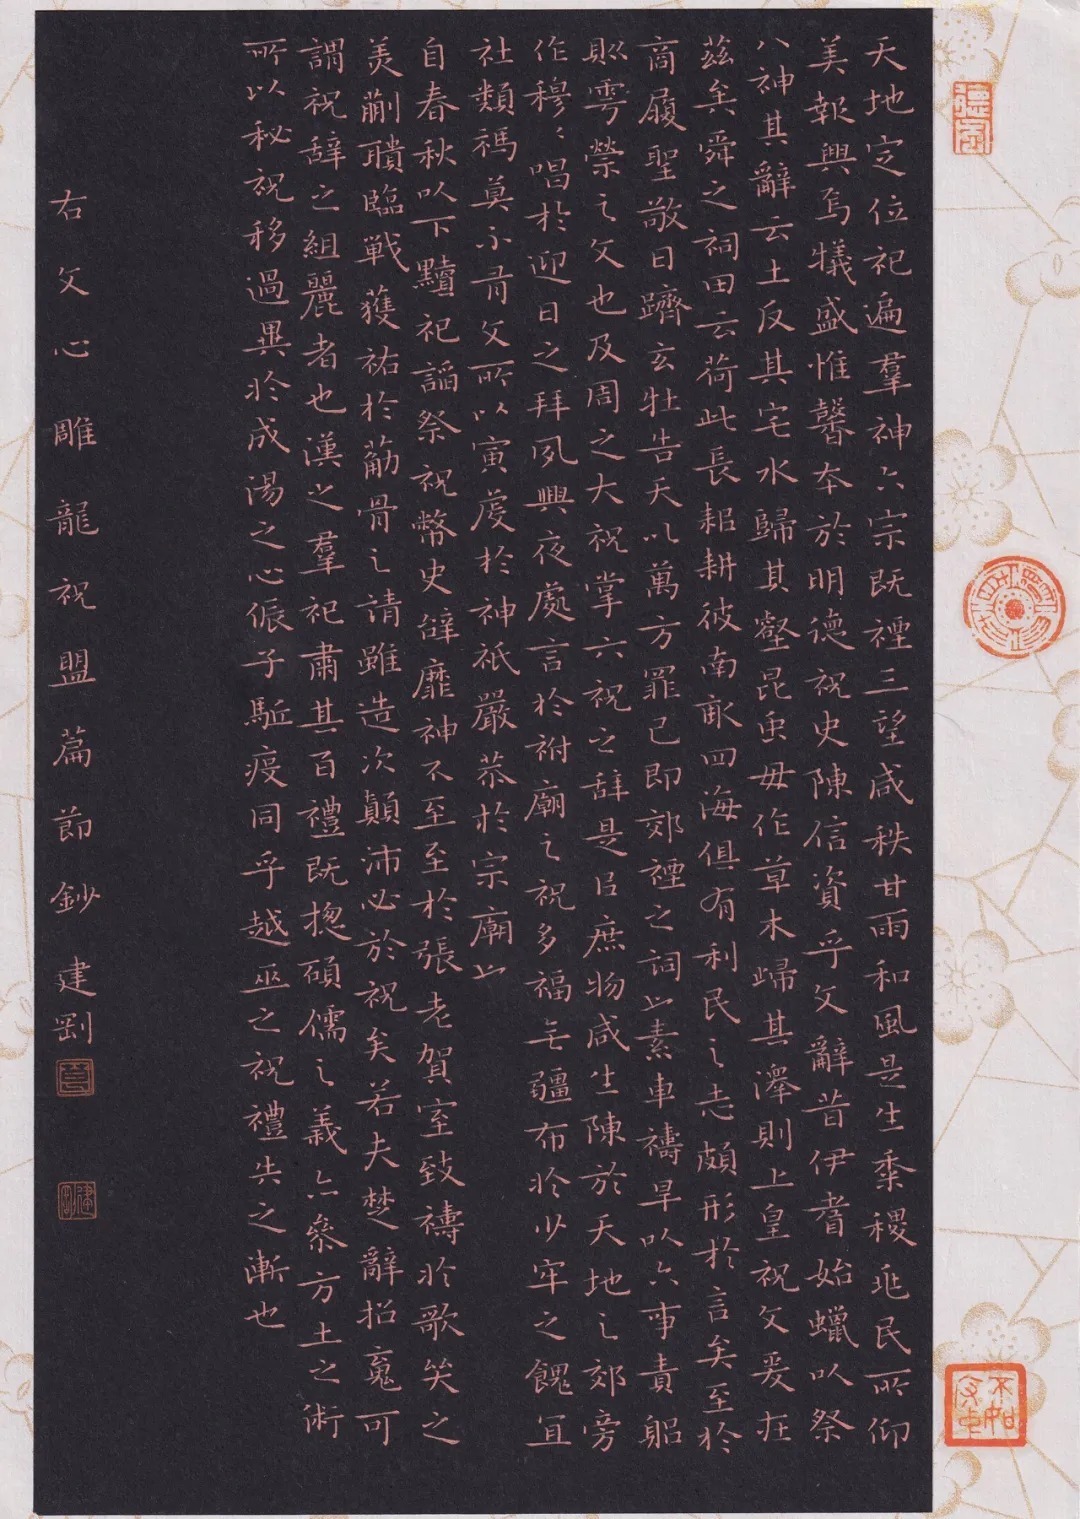 天地定位祀遍羣神六宗既禋三望咸秩甘雨和風是生黍稷兆民所仰
美報興焉犧盛惟馨本於明德祝史陳信資乎文辭昔伊耆始蠟以祭
八神其辭云土反其宅水歸其壑昆虫毋作草木歸其澤則上皇祝文爰在
茲矣舜之祠田云荷此長耜耕彼南畝四海俱有利民之志頗形於言矣至於
商履聖敬日躋玄牡告天以萬方罪己即郊禋之詞也素車禱旱以六事責躬
則雩禜之文也及周之大祝掌六祝之辞是以庶物咸生陳於天地之郊旁
作穆々唱於迎日之拜夙興夜處言於祔廟之祝多福无疆布於少牢之餽宜
社類禡莫不有文所以寅虔於神祇嚴恭於宗廟也
自春秋以下黷祀諂祭祝幣史辭靡神不至至於張老賀室致禱於歌哭之
美蒯聵臨戰獲祐於筋骨之請雖造次顛沛必於祝矣若夫楚辭招䰟可
謂祝辭之組麗者也漢之羣祀肅其百禮既揔碩儒之義亦參方士之術
所以秘祝移過異於成湯之心侲子駈疫同乎越巫之祝禮失之漸也
右文心雕龍祝盟篇節鈔建剛
建剛